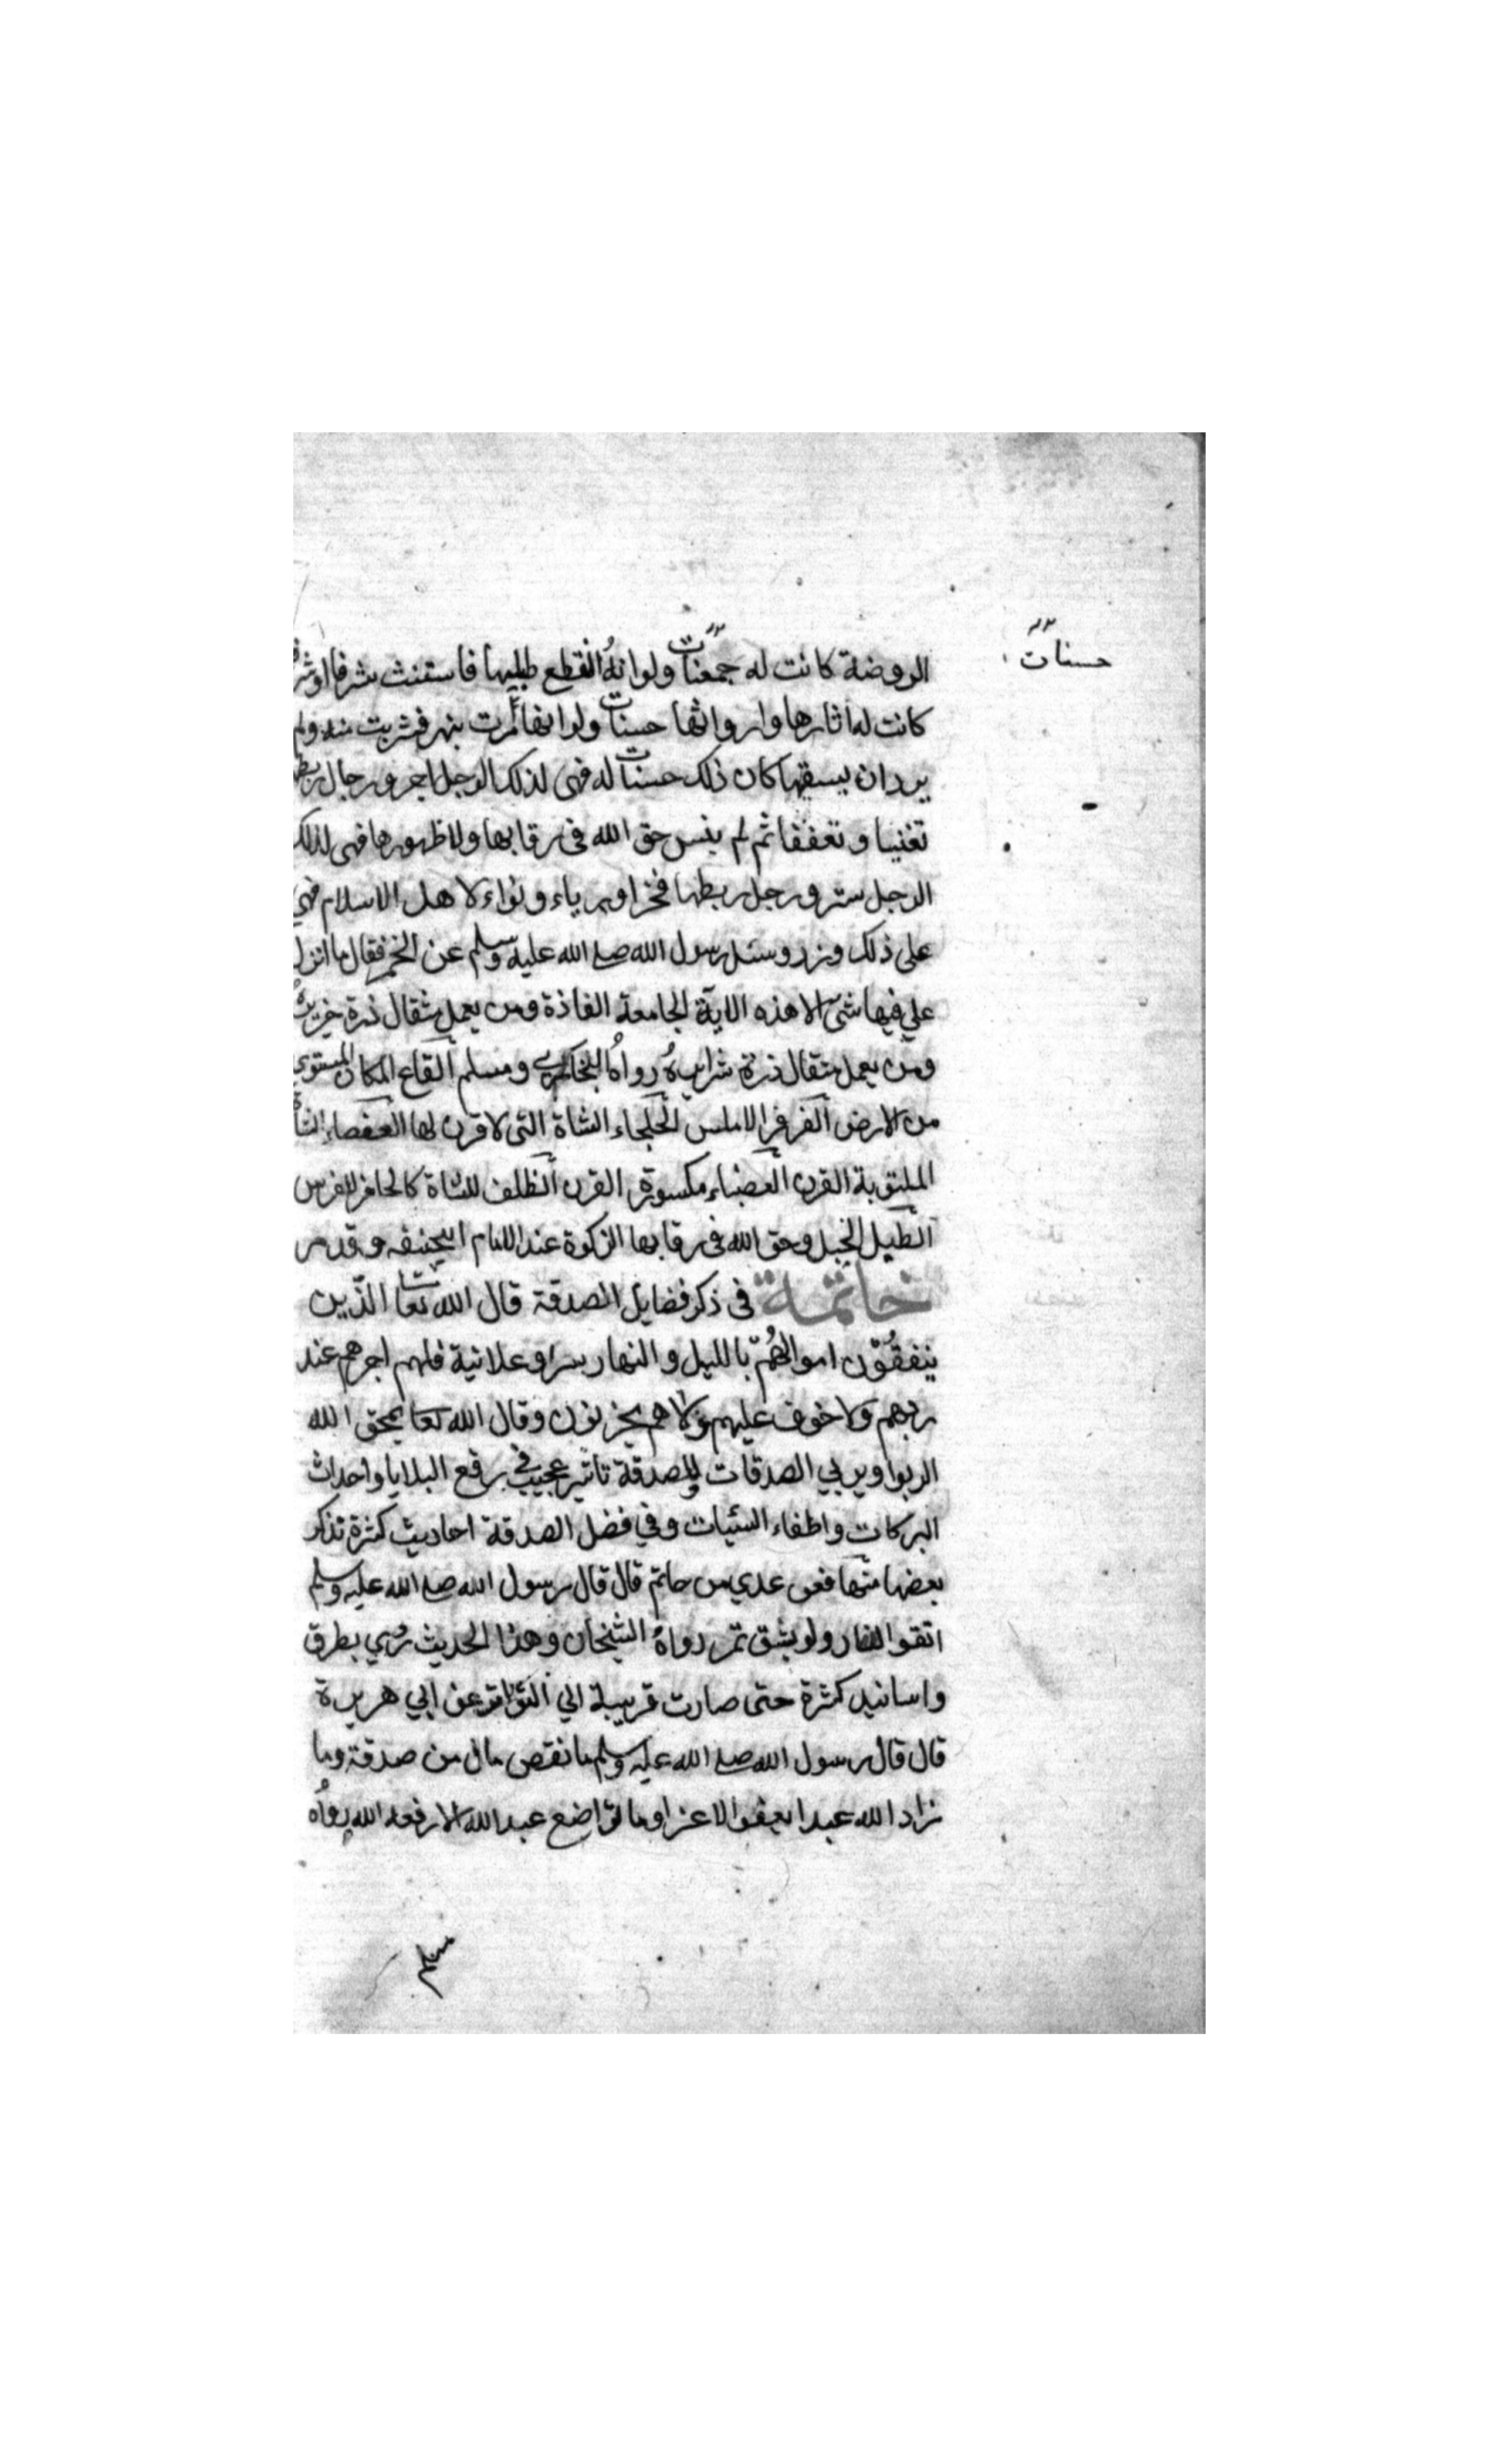 حسنات
الروضة كانت له جمعنات ولو انه انقطع طيلها فاستنت شرفا او
كانت له اثارها واروائها حسنات ولو انها مرت بنهر فشربت منه ولم
يرد ان يسقيها كان ذلك حسنات له فهى لذلك الرجل اجر ورجل ربطها
تغنيا وتعففا ثم لم ينس حق الله فى رقابها ولا ظهورها فهى لذلك
الرجل ستر ورجل ربطها فخرا ورياء ونواء لاهل الاسلام فهى
على ذلك وزر وسئل رسول الله صلى الله عليه وسلم عن الخمر فقال ما انزل
علي فيها شئ الا هذه الاية الجامعة الفاذة ومن يعمل مثقال ذرة خيرا يره
ومن يعمل مثقال ذرة شرا يره رواه البخاري ومسلم القاع المكان المستوي
من الارض القرقر الاملس الجلجاء الشاة التى لا قرن لها العقصاء الشاة
الملتوية القرن العضباء مكسورة القرن الظلف للشاة كالحافر للفرس
الطيل الحبل وحق الله فى رقابها الزكوة عند الامام ابيحنيفه وقد مر
خاتمة فى ذكر فضايل الصدقة قال الله تعا الذين
ينفقون اموالهم بالليل والنهار سرا وعلانية فلهم اجرهم عند
ربهم ولا خوف عليهم ولا هم يحزنون وقال الله تعا يمحق الله
الربوا ويربي الصدقات وللصدقة تاثير عجيب في رفع البلايا واحداث
البركات واطفاء السئيات وفي فضل الصدقة احاديث كثرة تذكر
بعضها منها فعن عدي من حاتم قال قال رسول الله صلى الله عليه وسلم
اتقوا النار ولو بشق تمر رواه الشيخان وهذا الحديث روي بطرق
واسانيد كثرة حتى صارت قريبة الي التواتر عن ابي هريرة
قال قال رسول الله صلى الله عليه وسلم ما نقص مال من صدقة وما
زاد الله عبدا بعفو الا عزا وما تواضع عبد الله الا رفعه الله رواه
مسلم